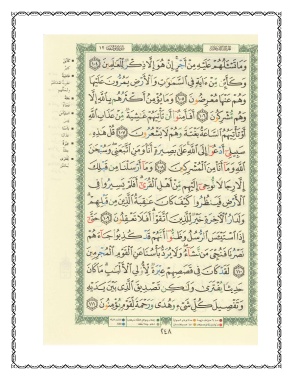 سورة يوسف ١٢
وَمَا تَسْـَٔلُهُمْ عَلَيْهِ مِنْ أَجْرٍ إِنْ هُوَ إِلَّا ذِكْرٌ لِّلْعَـٰلَمِينَ ١٠٤
وَكَأَيِّن مِّنْ ءَايَةٍ فِى ٱلسَّمَـٰوَٰتِ وَٱلْأَرْضِ يَمُرُّونَ عَلَيْهَا
وَهُمْ عَنْهَا مُعْرِضُونَ ١٠٥ وَمَا يُؤْمِنُ أَكْثَرُهُم بِٱللَّهِ إِلَّا
وَهُم مُّشْرِكُونَ ١٠٦ أَفَأَمِنُوٓا۟ أَن تَأْتِيَهُمْ غَـٰشِيَةٌ مِّنْ عَذَابِ ٱللَّهِ
أَوْ تَأْتِيَهُمُ ٱلسَّاعَةُ بَغْتَةً وَهُمْ لَا يَشْعُرُونَ ١٠٧ قُلْ هَـٰذِهِۦ
سَبِيلِىٓ أَدْعُوٓا۟ إِلَى ٱللَّهِ عَلَىٰ بَصِيرَةٍ أَنَا۠ وَمَنِ ٱتَّبَعَنِى وَسُبْحَـٰنَ
ٱللَّهِ وَمَآ أَنَا۠ مِنَ ٱلْمُشْرِكِينَ ١٠٨ وَمَآ أَرْسَلْنَا مِن قَبْلِكَ
إِلَّا رِجَالًا نُّوحِىٓ إِلَيْهِم مِّنْ أَهْلِ ٱلْقُرَىٰٓ أَفَلَمْ يَسِيرُوا۟ فِى
ٱلْأَرْضِ فَيَنظُرُوا۟ كَيْفَ كَانَ عَـٰقِبَةُ ٱلَّذِينَ مِن قَبْلِهِمْ
وَلَدَارُ ٱلْـَٔاخِرَةِ خَيْرٌ لِّلَّذِينَ ٱتَّقَوْا۟ أَفَلَا تَعْقِلُونَ ١٠٩ حَتَّىٰٓ
إِذَا ٱسْتَيْـَٔسَ ٱلرُّسُلُ وَظَنُّوٓا۟ أَنَّهُمْ قَدْ كُذِبُوا۟ جَآءَهُمْ
نَصْرُنَا فَنُجِّىَ مَن نَّشَآءُ وَلَا يُرَدُّ بَأْسُنَا عَنِ ٱلْقَوْمِ ٱلْمُجْرِمِينَ
١١٠ لَقَدْ كَانَ فِى قَصَصِهِمْ عِبْرَةٌ لِّأُو۟لِى ٱلْأَلْبَـٰبِ مَا كَانَ
حَدِيثًا يُفْتَرَىٰ وَلَـٰكِن تَصْدِيقَ ٱلَّذِى بَيْنَ يَدَيْهِ
وَتَفْصِيلَ كُلِّ شَىْءٍ وَهُدًى وَرَحْمَةً لِّقَوْمٍ يُؤْمِنُونَ ١١١
٢٤٨